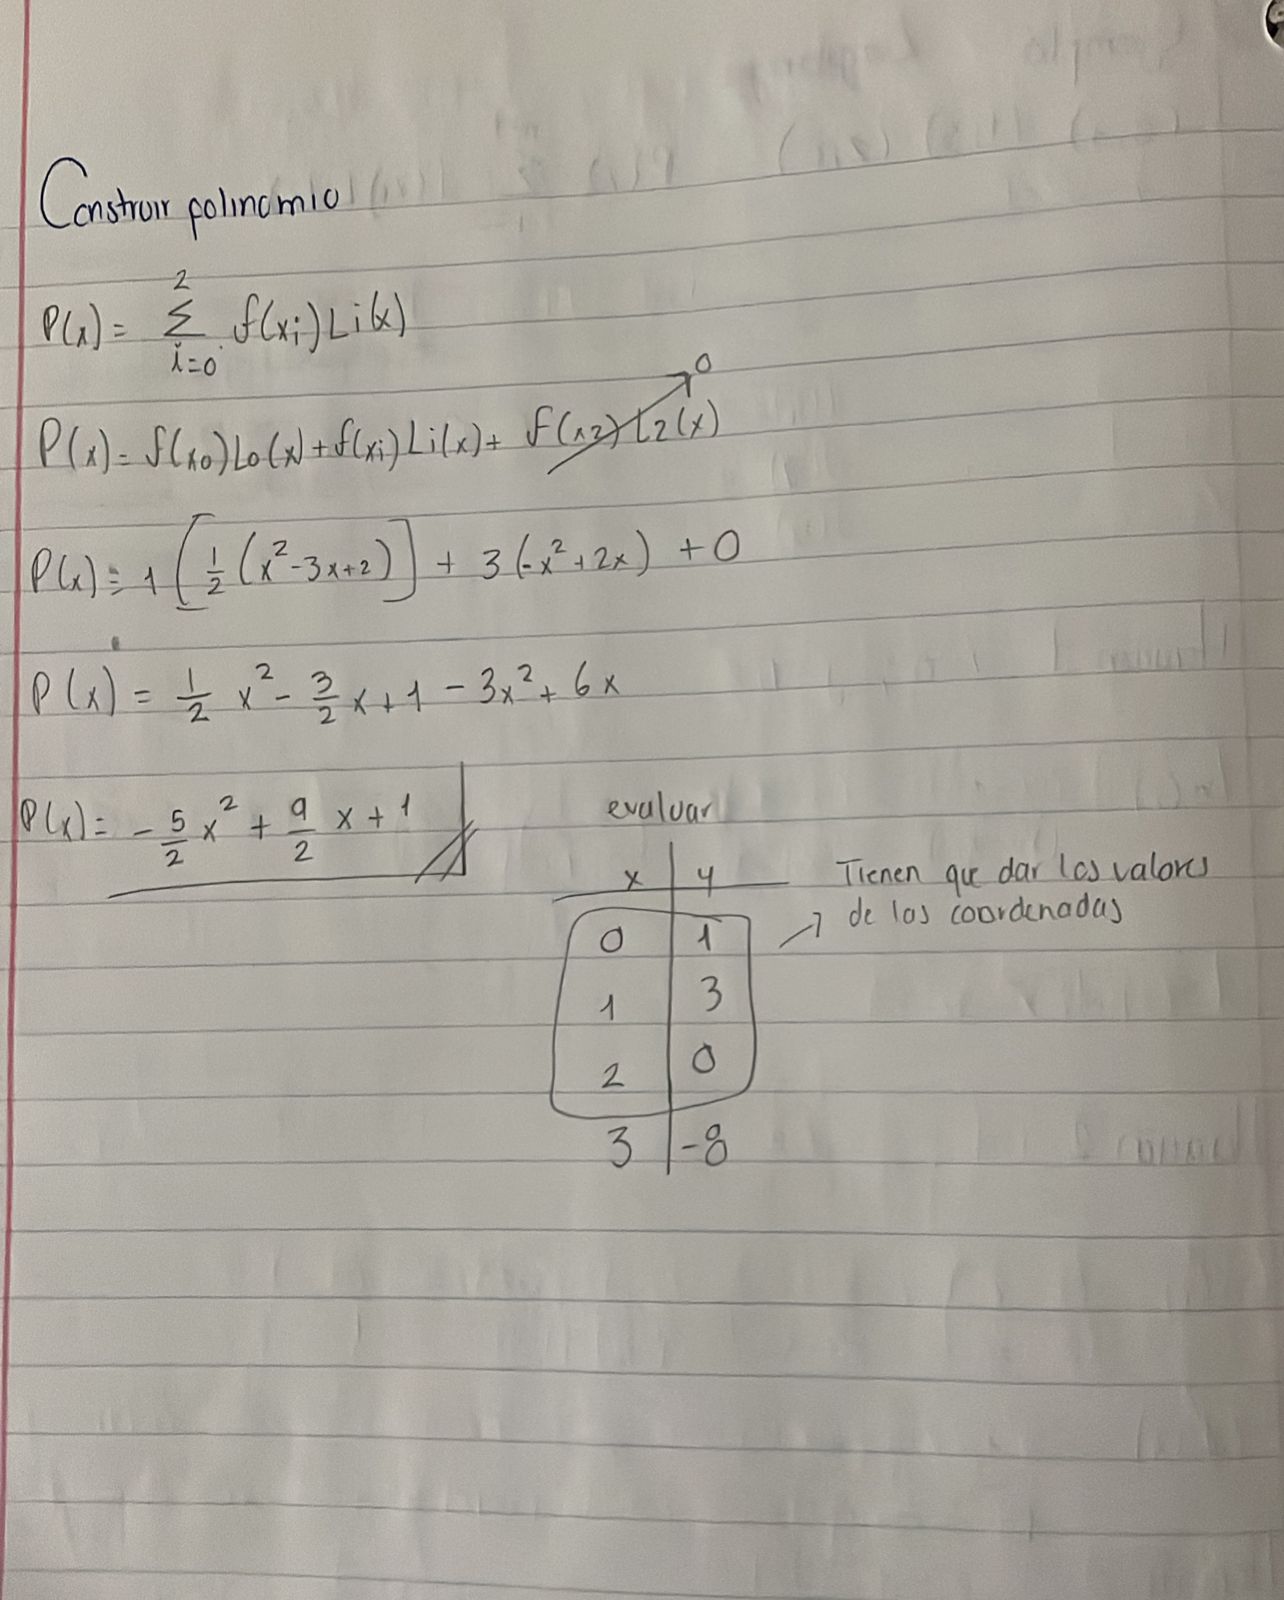 Construir polinomio
P(x) = 2 Σ i=0 f(xi) Li(x)
P(x) = f(x0) L0(x) + f(xi) Li(x) + f(x2) L2(x) → 0
P(x) = 1 [1/2 (x² - 3x + 2)] + 3 (-x² + 2x) + 0
P(x) = 1/2 x² - 3/2 x + 1 - 3x² + 6x
P(x) = - 5/2 x² + 9/2 x + 1
evaluar
x | y
0 | 1
1 | 3
2 | 0
3 | -8
→ Tienen que dar los valores
de las coordenadas